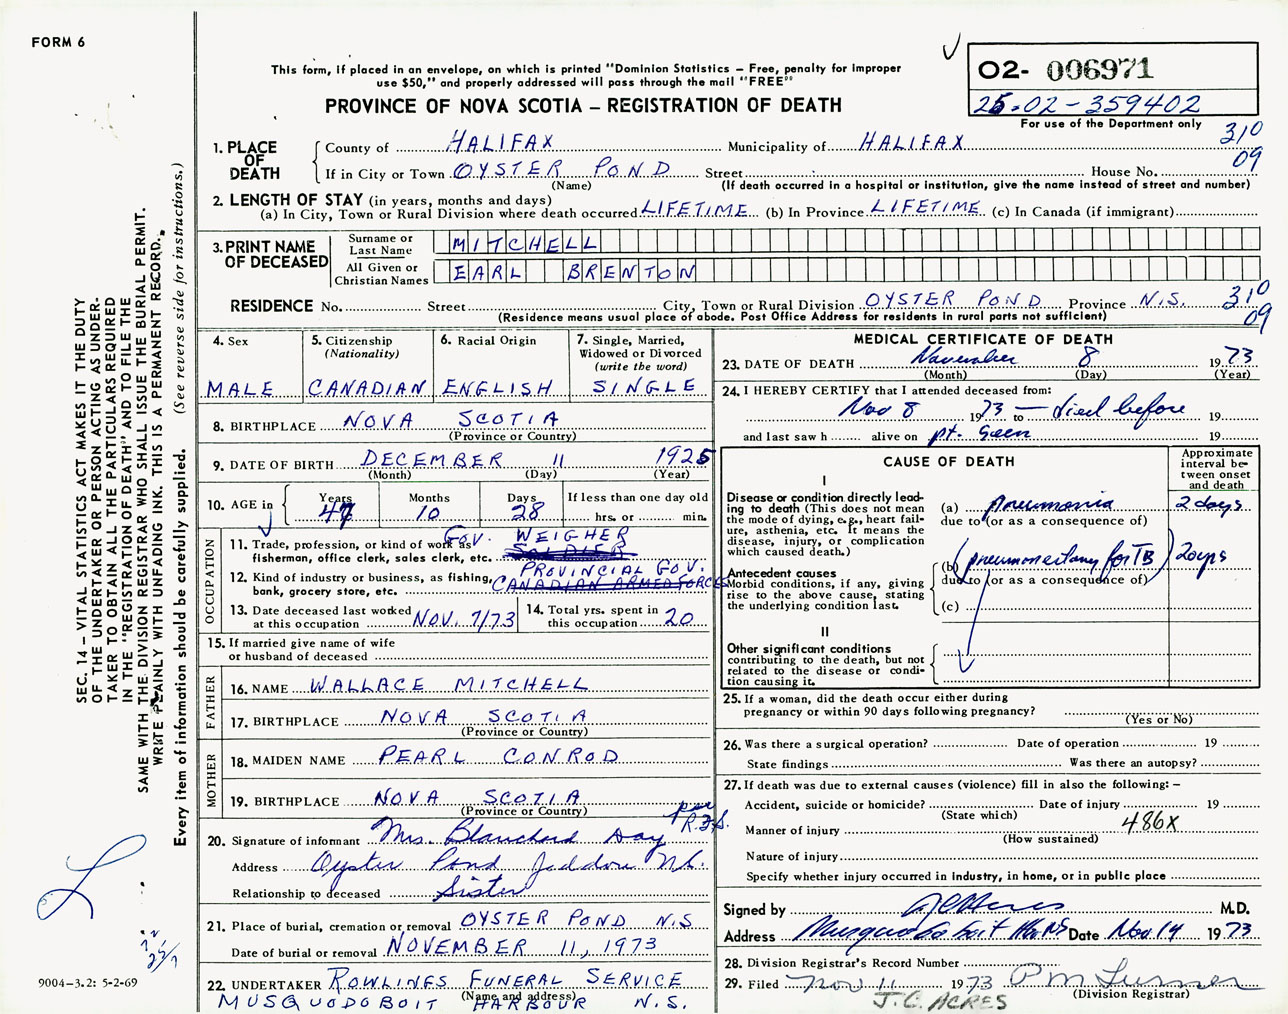 FORM 6
This form, if placed in an envelope, on which is printed "Dominion Statistics – Free, penalty for improper
use $50," and properly addressed will pass through the mail "FREE"
PROVINCE OF NOVA SCOTIA – REGISTRATION OF DEATH
O2- 006971
25-02-359402
For use of the Department only
310
09
1. PLACE OF DEATH
County of HALIFAX Municipality of HALIFAX
If in City or Town OYSTER POND Street House No.
(Name) (If death occurred in a hospital or institution, give the name instead of street and number)
2. LENGTH OF STAY (in years, months and days)
(a) In City, Town or Rural Division where death occurred LIFETIME (b) In Province LIFETIME (c) In Canada (if immigrant)
3. PRINT NAME OF DECEASED
Surname or Last Name MITCHELL
All Given or Christian Names EARL BRENTON
RESIDENCE No. Street City, Town or Rural Division OYSTER POND Province N.S.
(Residence means usual place of abode. Post Office Address for residents in rural parts not sufficient)
310
09
4. Sex
MALE
5. Citizenship
(Nationality)
CANADIAN
6. Racial Origin
ENGLISH
7. Single, Married,
Widowed or Divorced
(write the word)
SINGLE
8. BIRTHPLACE NOVA SCOTIA
(Province or Country)
9. DATE OF BIRTH DECEMBER 11 1925
(Month) (Day) (Year)
10. AGE in
Years Months Days If less than one day old
47 10 28 hrs. or min.
OCCUPATION
11. Trade, profession, or kind of work as GOV. WEIGHER
fisherman, office clerk, sales clerk, etc. SOLDIER
PROVINCIAL GOV.
12. Kind of industry or business, as fishing, CANADIAN ARMED FORCES
bank, grocery store, etc.
13. Date deceased last worked
at this occupation NOV. 7/73
14. Total yrs. spent in
this occupation 20
15. If married give name of wife
or husband of deceased
FATHER
16. NAME WALLACE MITCHELL
17. BIRTHPLACE NOVA SCOTIA
(Province or Country)
MOTHER
18. MAIDEN NAME PEARL CONROD
19. BIRTHPLACE NOVA SCOTIA
(Province or Country)
per
R.F.S.
20. Signature of informant Mrs. Blanchard Day
Address Oyster Pond Jeddore N.S.
Relationship to deceased Sister
21. Place of burial, cremation or removal OYSTER POND N.S
Date of burial or removal NOVEMBER 11, 1973
22. UNDERTAKER ROWLINGS FUNERAL SERVICE
(Name and address)
MUSQUODOBOIT HARBOUR N.S.
MEDICAL CERTIFICATE OF DEATH
23. DATE OF DEATH November 8 1973
(Month) (Day) (Year)
24. I HEREBY CERTIFY that I attended deceased from:
Nov 8 1973 to – died before 19
and last saw h alive on pt. seen 19
CAUSE OF DEATH
Approximate
interval be-
tween onset
and death
I
Disease or condition directly lead-
ing to death (This does not mean
the mode of dying, e.g., heart fail-
ure, asthenia, etc. it means the
disease, injury, or complication
which caused death.)
(a) pneumonia 2 days
due to (or as a consequence of)
Antecedent causes
Morbid conditions, if any, giving
rise to the above cause, stating
the underlying condition last.
(b) (pneumonectomy for TB) 20 yrs
due to (or as a consequence of)
(c)
II
Other significant conditions
contributing to the death, but not
related to the disease or condi-
tion causing it.
25. If a woman, did the death occur either during
pregnancy or within 90 days following pregnancy?
(Yes or No)
26. Was there a surgical operation? Date of operation 19
State findings Was there an autopsy?
27. If death was due to external causes (violence) fill in also the following: –
Accident, suicide or homicide? Date of injury 19
(State which)
Manner of injury 486X
(How sustained)
Nature of injury
Specify whether injury occurred in industry, in home, or in public place
Signed by M.D.
Address Musquodoboit Date Nov 14 1973
28. Division Registrar's Record Number
29. Filed Nov 11 1973 P M Turner
(Division Registrar)
J. C. ACRES
SEC. 14 – VITAL STATISTICS ACT MAKES IT THE DUTY
OF THE UNDERTAKER OR PERSON ACTING AS UNDER-
TAKER TO OBTAIN ALL THE PARTICULARS REQUIRED
IN THE "REGISTRATION OF DEATH" AND TO FILE THE
SAME WITH THE DIVISION REGISTRAR WHO SHALL ISSUE THE BURIAL PERMIT.
WRITE PLAINLY WITH UNFADING INK. THIS IS A PERMANENT RECORD.
Every item of information should be carefully supplied. (See reverse side for instructions.)
9004–3.2: 5-2-69